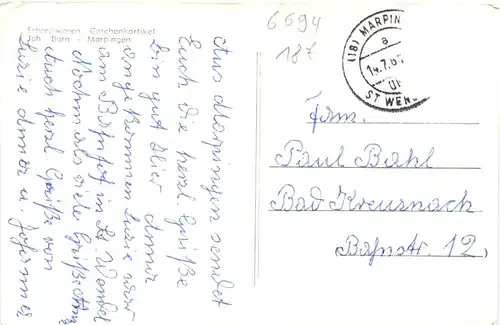 Schreibwaren Geschenkartikel
Joh. Born - Marpingen
6694
187
(18) MARPIN
a
14.7.6
ST WEN
Aus Marpingen sendet
Euch die herzl. Grüße
Bin gut hier
angekommen Luzie war
am Bahnhof in St Wendel
Nochmals viele Grüße
Auch herzl. Grüße von
Luzie
Fam.
Paul Bahl
Bad Kreuznach
Bahnstr. 12